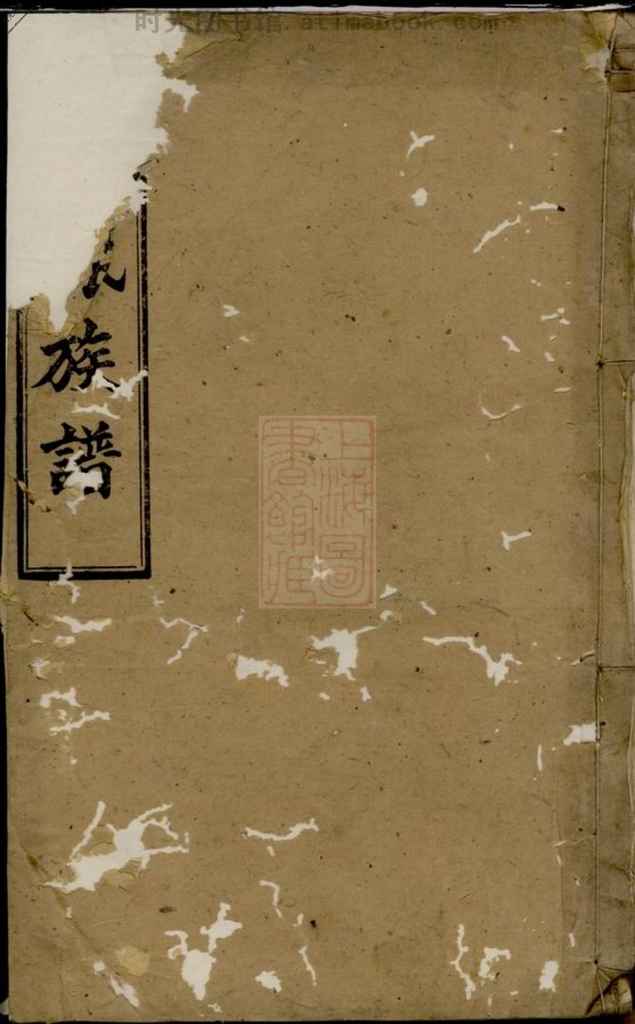 时光图书馆 atimebook.com
氏族譜
上海圖書館藏